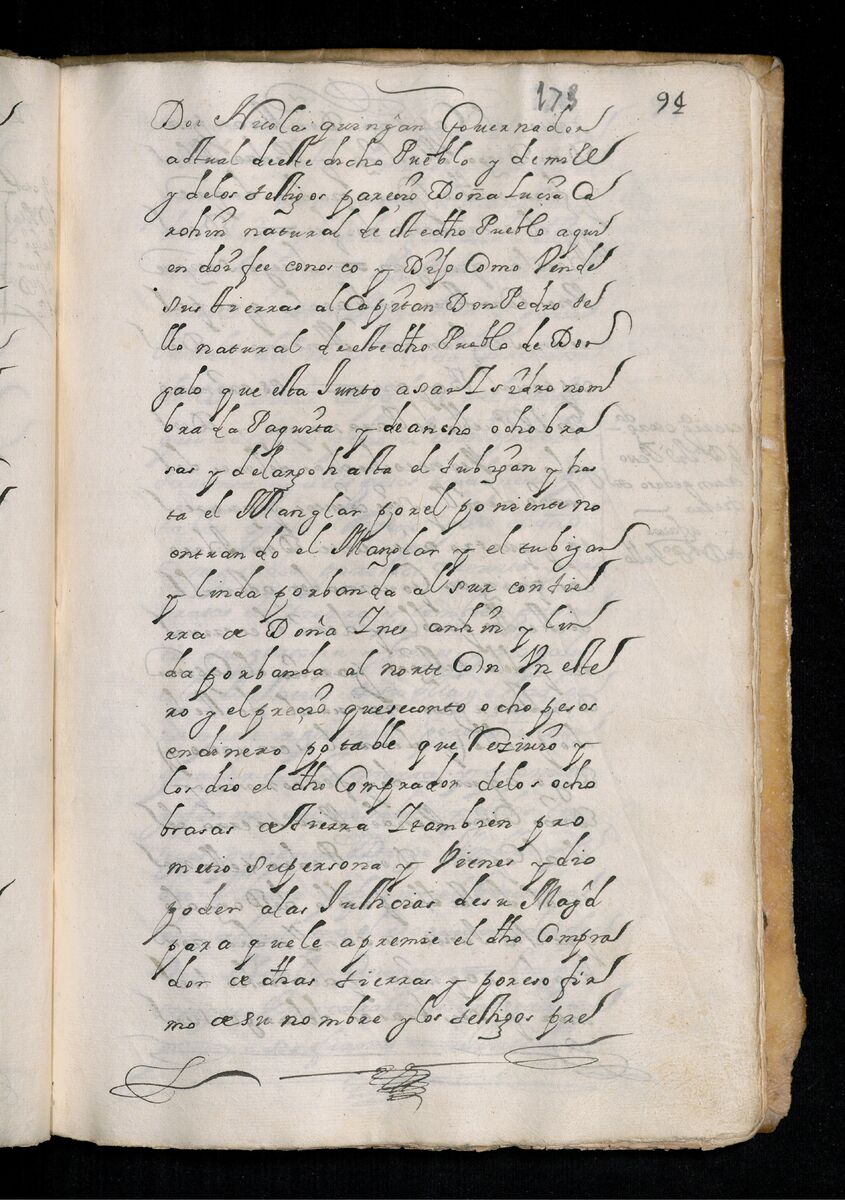 173
94
Don Nicolas quingan Gouernador
actual deeste dicho Pueblo y de mi ess
y delos testigos pareçio Doña Lucia Ca
rohin natural de este dho Pueblo aqui
en doi fee conosco y Dixo Como Vende
sus tierras al Capitan Don Pedro te
llo natural de este dho Pueblo de Don
galo que esta Junto a san Isidro nom
brada Paquita y de ancho ocho bra
sas y delargo hasta el tubigan y has
ta el Manglar por el poniente no
entrando el Manglar y el tubigan
y linda porbanda al sur con tie
rra de Doña Ines anhin y lin
da porbanda al norte Con Vn este
ro y el preçio queseconto ocho pesos
endinero potable que Reziuio y
los dio el dho Comprador delos ocho
brasas de tierra Itambien pro
metio supersona y Vienes y dio
poder alas Justicias desu Magd
para quele apremie el dho Compra
dor de dhas tierras y poreso fir
mo de su nombre y los testigos pre